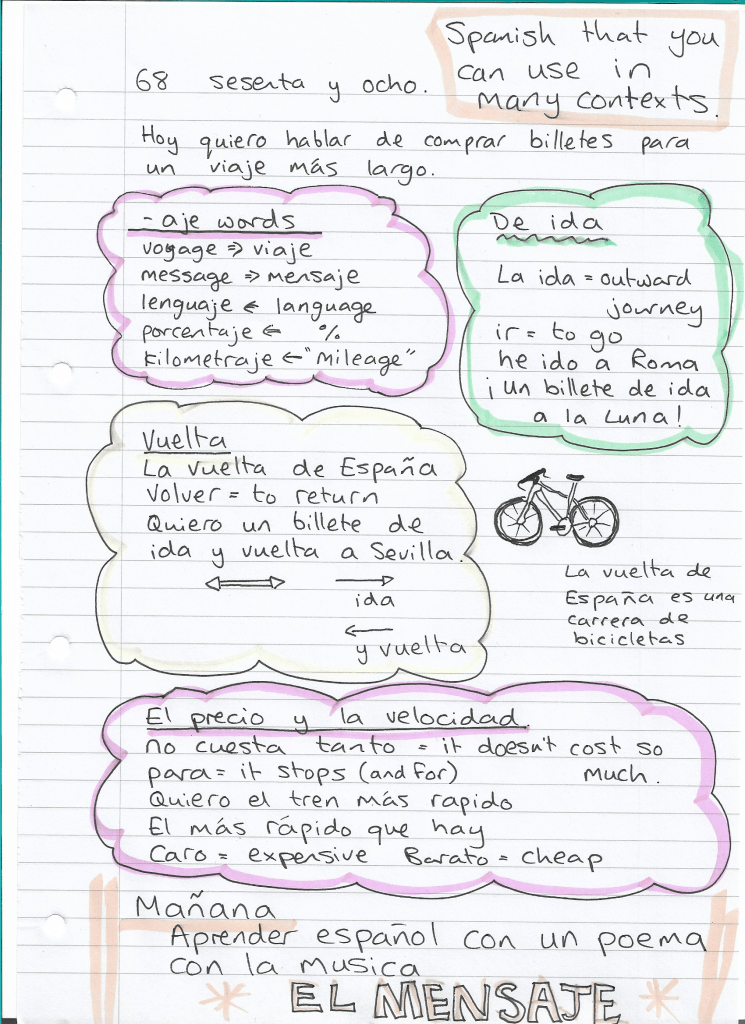 Spanish that you
can use in
many contexts.
68 sesenta y ocho.
Hoy quiero hablar de comprar billetes para
un viaje más largo.
-aje words
voyage => viaje
message => mensaje
lenguaje <= language
porcentaje <= %
Kilometraje <- "Mileage"
De ida
La ida = outward
journey
ir = to go
he ido a Roma
¡Un billete de ida
a la Luna!
Vuelta
La vuelta de España
Volver = to return
Quiero un billete de
ida y vuelta a Sevilla.
ida
y vuelta
La vuelta de
España es una
carrera de
bicicletas
El precio y la velocidad.
no cuesta tanto = it doesn't cost so
much.
para = it stops (and for)
Quiero el tren más rapido
El más rápido que hay
Caro = expensive Barato = cheap
Mañana
Aprender español con un poema
con la musica
EL MENSAJE